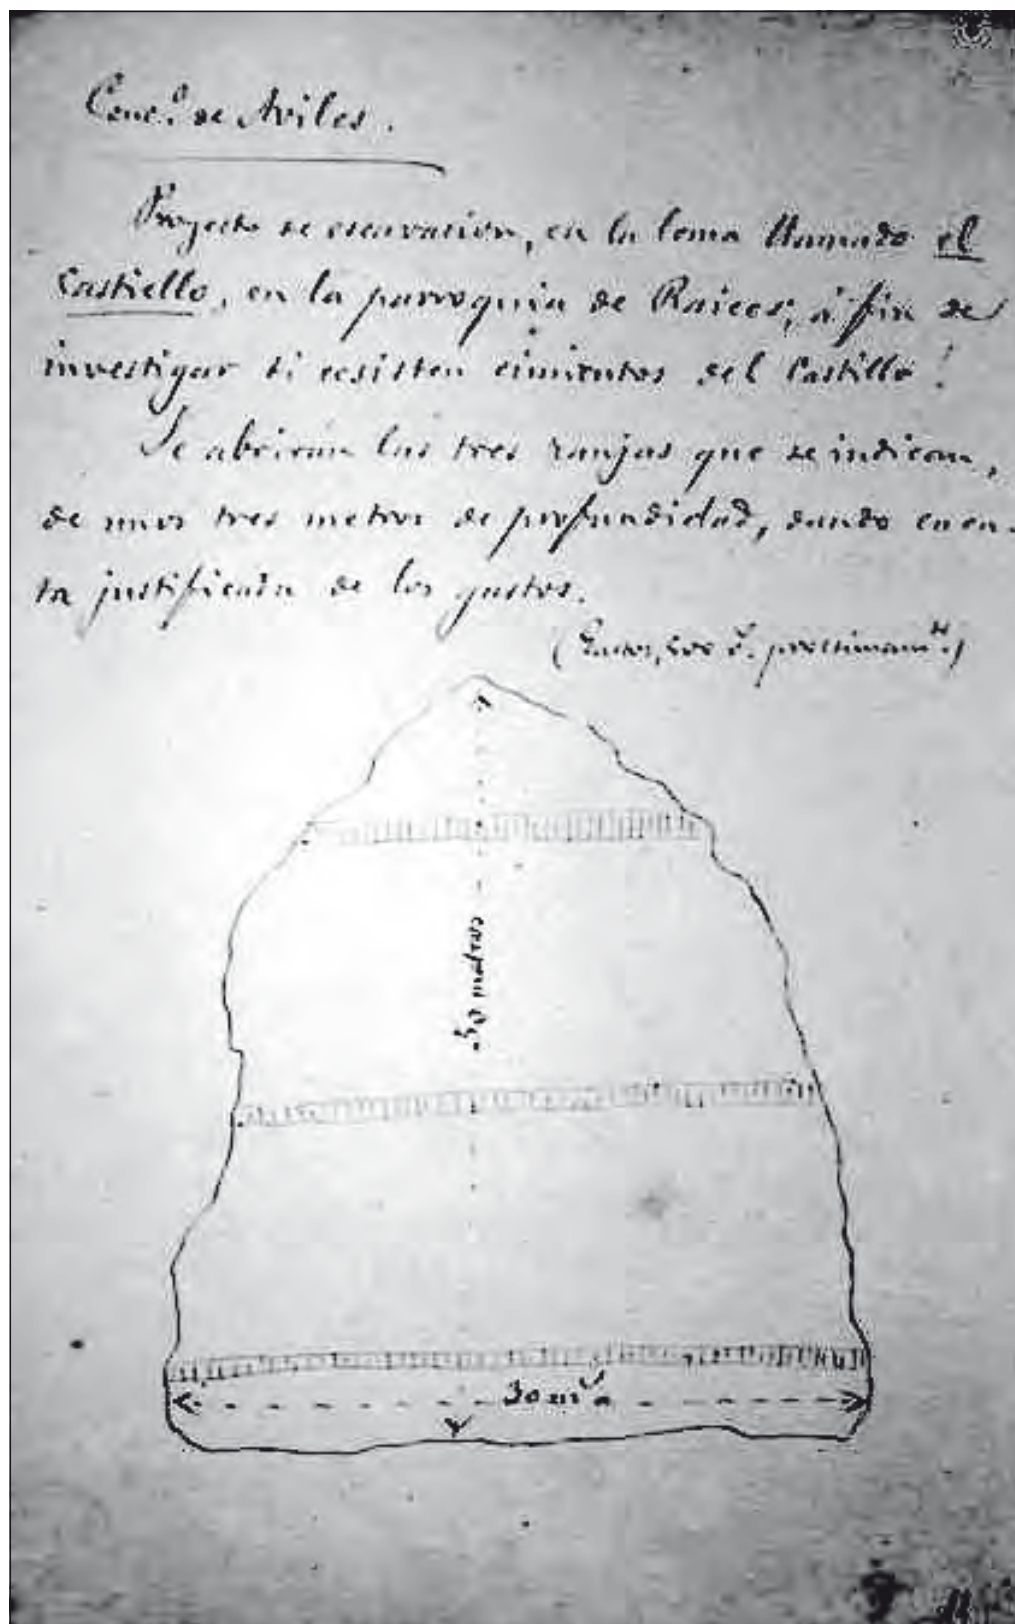 Conc.º de Aviles.
Proyecto de escavacion, en la loma llamado el
Castiello, en la parroquia de Raices; á fin de
investigar si ecsisten cimientos del Castillo!
Se abrirán las tres zanjas que se indican,
de unos tres metros de profundidad, dando cuen-
ta justificada de los gastos.
(Gastos, 500
50 metros
30 m.s